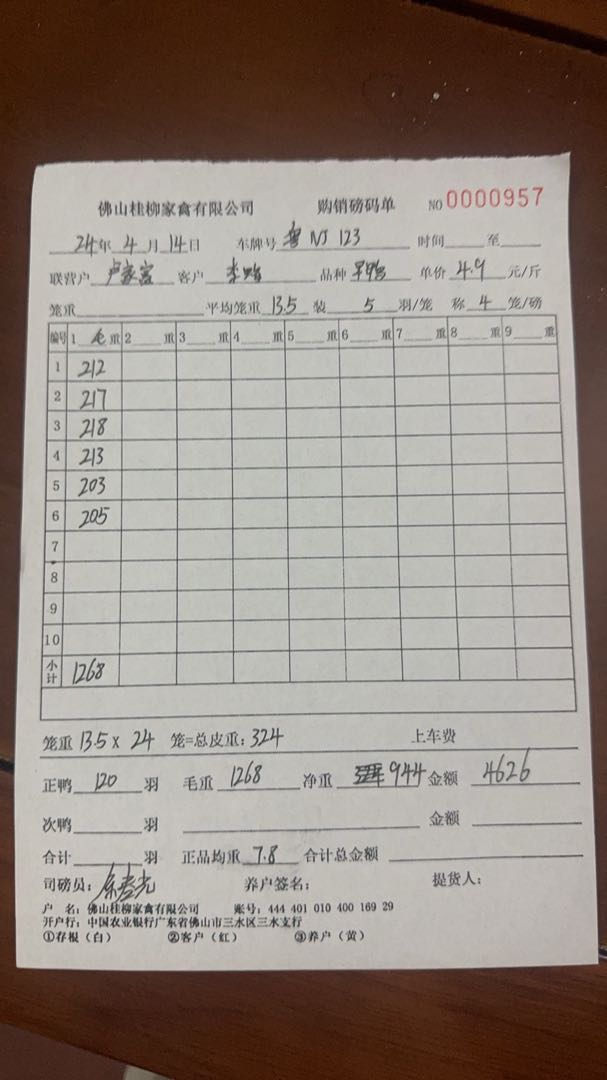 佛山桂柳家禽有限公司 购销磅码单 NO 0000957
24年 4 月 14日 车牌号 粤 NJ 123 时间 至
联营户 客户 李 品种 单价 4.9 元/斤
笼重 平均笼重 13.5 装 5 羽/笼 称 4 笼/磅
编号 1 毛 重 2 重 3 重 4 重 5 重 6 重 7 重 8 重 9 重
1 212
2 217
3 218
4 213
5 203
6 205
7
8
9
10
小计 1268
笼重 13.5 X 24 笼=总皮重: 324 上车费
正鸭 120 羽 毛重 1268 净重 944 金额 4626
次鸭 羽 金额
合计 羽 正品均重 7.8 合计总金额
司磅员: 养户签名: 提货人:
户 名: 佛山桂柳家禽有限公司 账号: 444 401 010 400 169 29
开户行: 中国农业银行广东省佛山市三水区三水支行
①存根(白) ②客户(红) ③养户(黄)